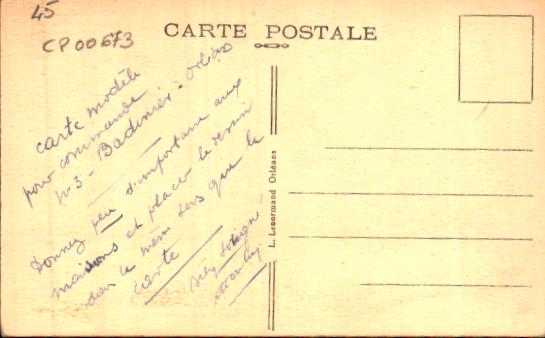 45
CP00673
CARTE POSTALE
carte modèle
pour commande
N°3 - Badinier - Orléans
Donnez peu d'importance aux
maisons et placer le dessin
dans le même sens que la
carte
L. Lenormand Orléans